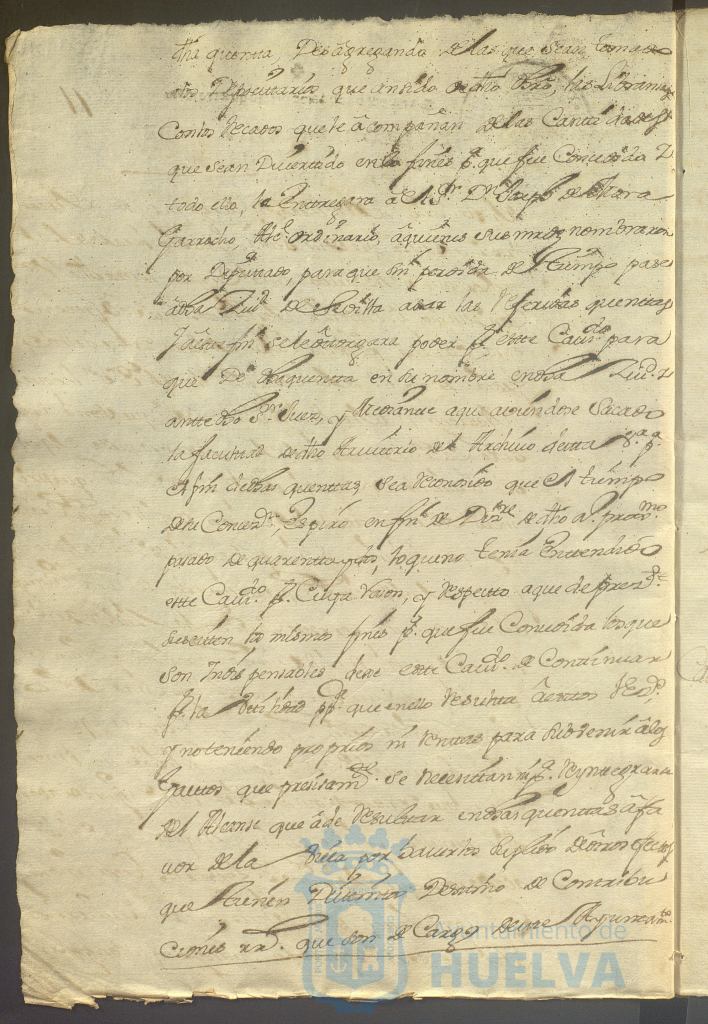 dha quenta, Desagregando de las que sean tomado
a los Depocitarios, que an sido de dho Adrio, los Libramtos
Con los Recados que le acompañan de las Cantidades
que sean Divertido en los fines pa. que fue Consedida
todo ello, lo Entregara a el Sr. Dn. Joseph de Mora
Garrocho, Alce. ordinario, a quienes sus mrds nombraron
por Diputado, para que sin perdida de tiempo pase
a dha Ziud. de Sevilla a dar las Referidas quentas
se le otorgara poder pr. este Cavdo. para
que De dha quenta en su nombre en dha Ziud.
antte dho Sr. Juez, y Mediante a que aviendose Sacado
la facultad de dho Arvitrio del Archivo de esta Va. pa.
el fin de dhas quenttas, sea Reconosido que el tiempo
de su Conceon. Espiró en fin de Dizre. de dho a. proximo
pasado de quarentta, lo que no tenia Entendido
este Cavdo. pr. Cuya Razon, y Respecto a que de presente
subsisten los mismos fines pa. que fue Consedida los que
son Indispensables deve este Cavdo. de Continuar
pr. la utilidad pca. que en ello Resulta
y no teniendo proprios ni Rentas para subvenir a los
gastos que presisamte. se Necesitan ni pa. Reyntegrarse
del Alcanse que a de Resultar en dhas quenttas a fa
vor de la Villa por haverlos suplido de otros efectos
que tienen Distinto Destino de Contribu
ciones Rs. que son de Cargo de este Ayuntamto.
Ayuntamiento de
HUELVA